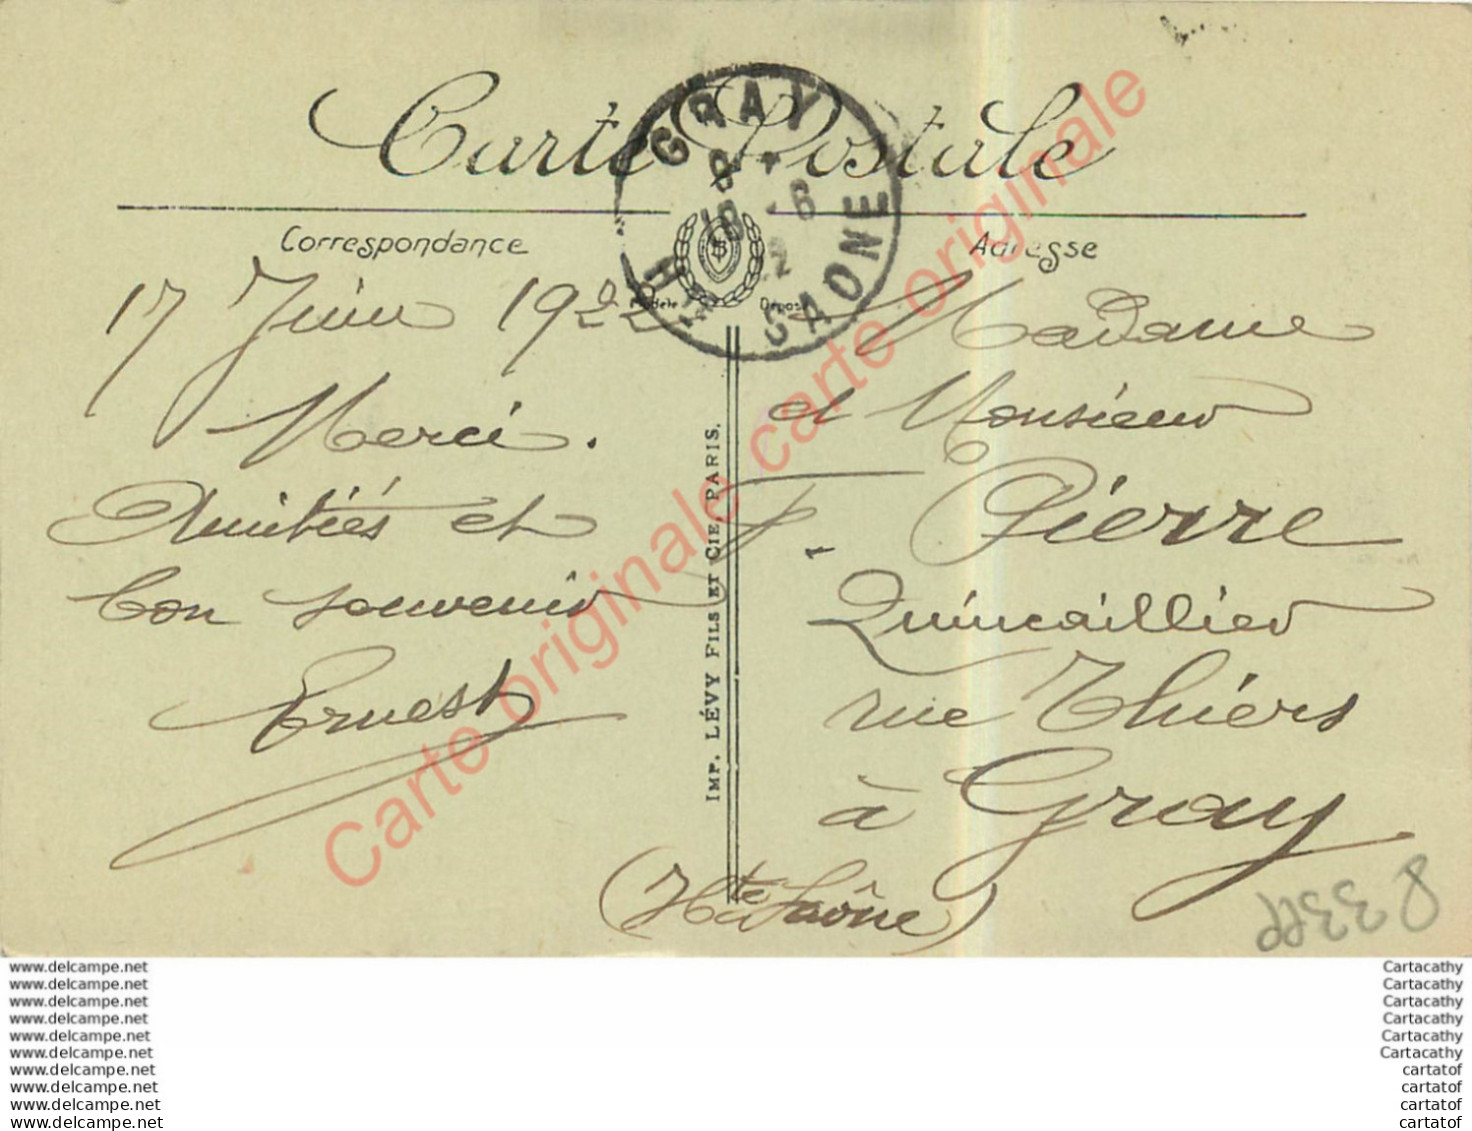 Carte Postale
Correspondance
Adresse
GRAY
8
18 - 6
22
HTE SAONE
Modèle Déposé
17 Juin 1922
Merci.
Amitiés et
bon souvenir
Ernest
IMP. LÉVY FILS ET CIE, PARIS.
Madame
et Monsieur
F. Pierre
Quincaillier
rue Thiers
à Gray
(Hte Saône)
Carte originale carte originale
www.delcampe.net
www.delcampe.net
www.delcampe.net
www.delcampe.net
www.delcampe.net
www.delcampe.net
www.delcampe.net
www.delcampe.net
www.delcampe.net
www.delcampe.net
Cartacathy
Cartacathy
Cartacathy
Cartacathy
Cartacathy
Cartacathy
cartatof
cartatof
cartatof
cartatof